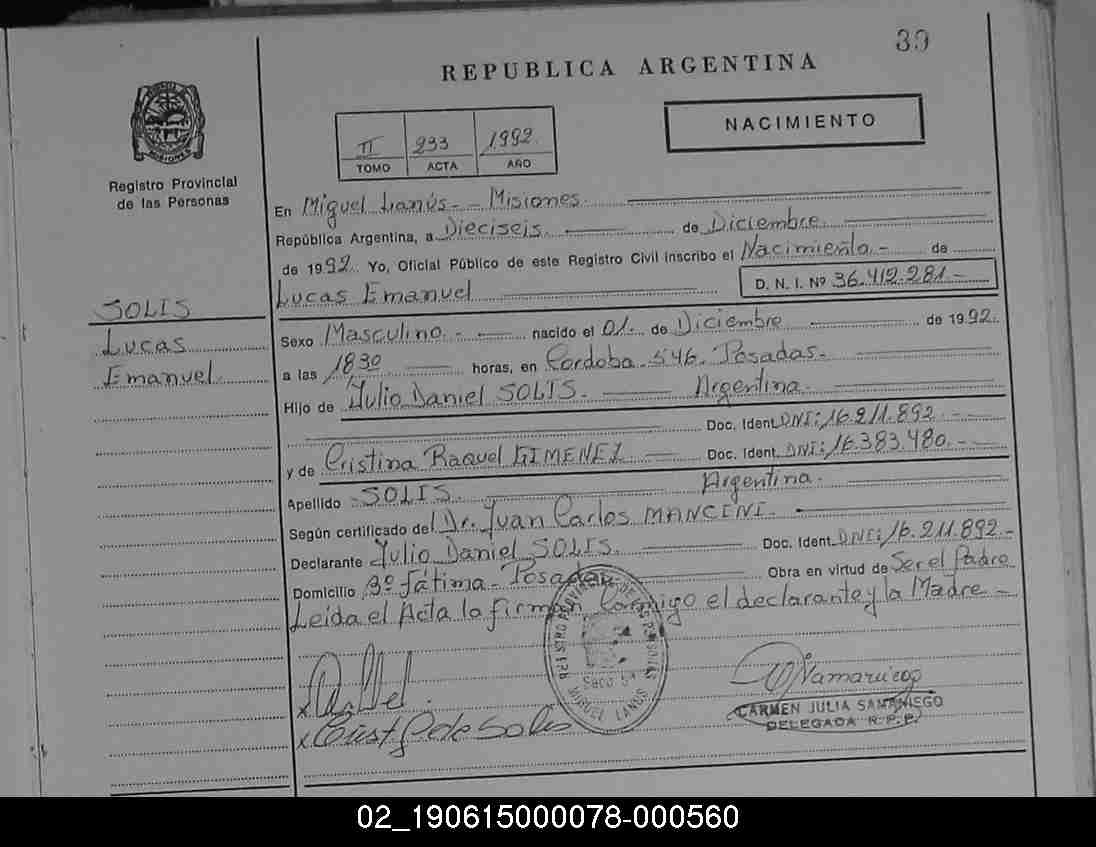 39
REPUBLICA ARGENTINA
MISIONES
Registro Provincial
de las Personas
II 233 1992
TOMO ACTA AÑO
NACIMIENTO
En Miguel Lanús - - Misiones.
República Argentina, a Dieciseis. de Diciembre.
de 1992. Yo, Oficial Público de este Registro Civil inscribo el Nacimiento - de
Lucas Emanuel D. N. I. Nº 36.412.281.-
SOLIS
Lucas
Emanuel.
Sexo Masculino. - nacido el 01. de Diciembre de 1992.
a las 18,30 horas, en Cordoba 546. Posadas.
Hijo de Julio Daniel SOLIS. Argentina.
Doc. Ident. DNI: 16.211.892. -
y de Cristina Raquel GIMENEZ Doc. Ident. DNI: 16.383.480. -
Apellido SOLIS. Argentina.
Según certificado del Dr. Juan Carlos MANCINI.
Declarante Julio Daniel SOLIS. Doc. Ident. DNI: 16.211.892.-
Domicilio Bº Fátima - Posadas Obra en virtud de Ser el Padre
Leida el Acta la firman Conmigo el declarante y la Madre -
REGISTRO PROVINCIAL DE LAS PERSONAS
MIGUEL LANUS
x
x Crist G de Solis
CARMEN JULIA SAMANIEGO
DELEGADA R.P.P.
02_190615000078-000560